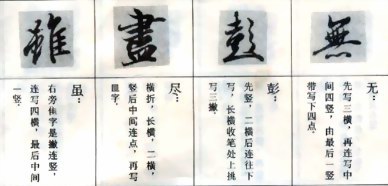 無
无：
先写三横，再连写中
间四竖，由最后一竖
带写下四点。
彭
彭：
先竖，二横后连往下
写，长横收笔处上挑
写三撇。
盡
尽：
横折，长横，二横，
竖后中间连点，再写
皿字。
雖
虽：
右旁隹字是撇连竖，
连写四横，最后中间
一竖。